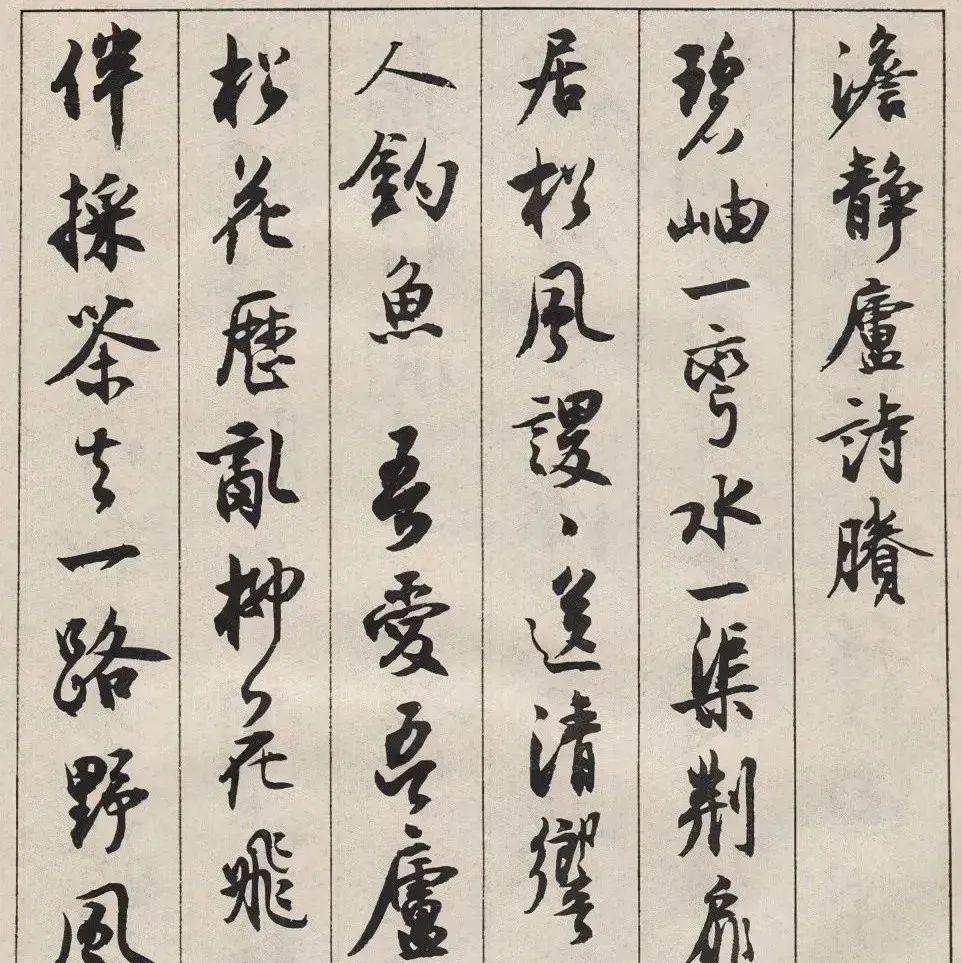 澹靜廬詩賸
碧岫一彎水一渠荆扉
居松風謖〻送清響
人釣魚吾愛吾廬
松花歷亂柳花飛
伴採茶去一路野風